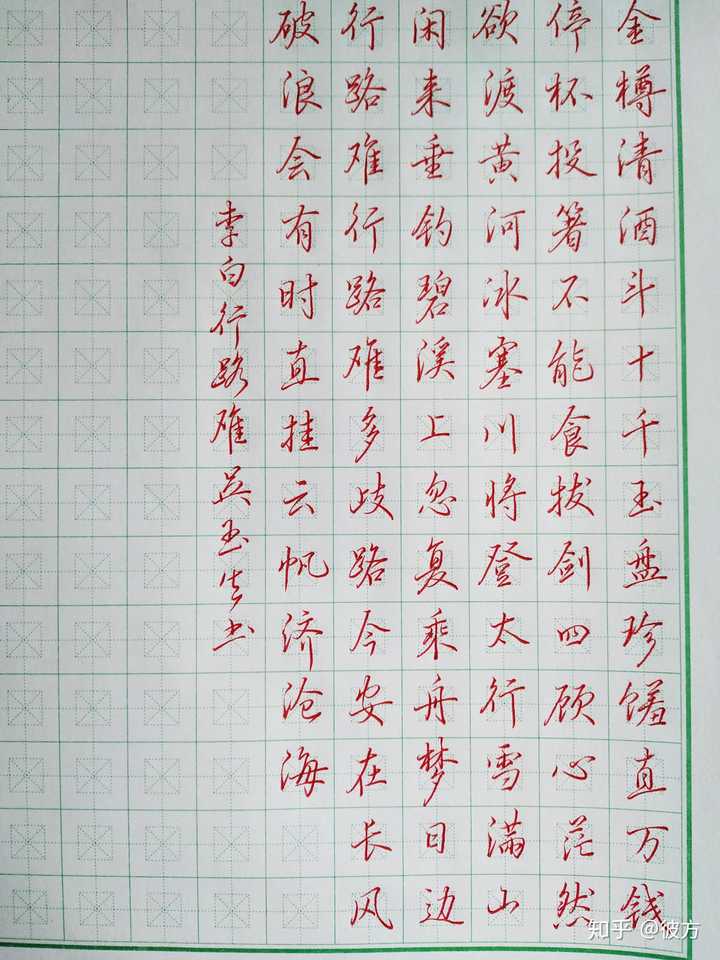 金樽清酒斗十千玉盘珍馐直万钱
停杯投箸不能食拔剑四顾心茫然
欲渡黄河冰塞川将登太行雪满山
闲来垂钓碧溪上忽复乘舟梦日边
行路难行路难多歧路今安在长风
破浪会有时直挂云帆济沧海
李白行路难吴玉生书
知乎 @彼方